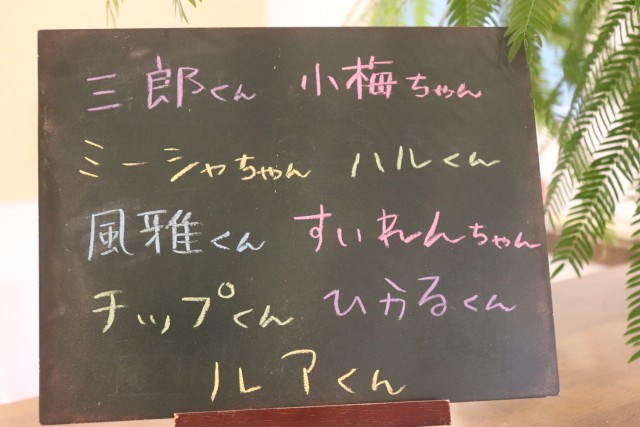 三郎くん 小梅ちゃん
ミーシャちゃん ハルくん
風雅くん すいれんちゃん
チップくん ひかるくん
ルアくん